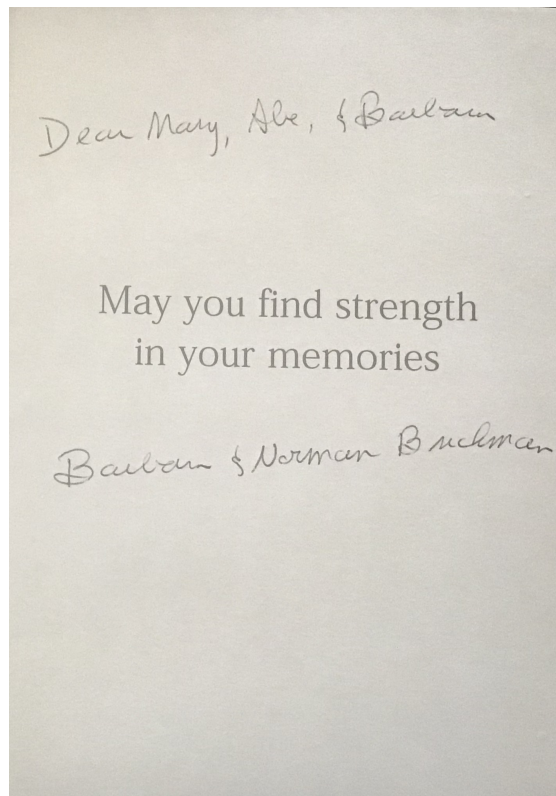 Dear Mary, Abe, & Barbara
May you find strength
in your memories
Barbara & Norman